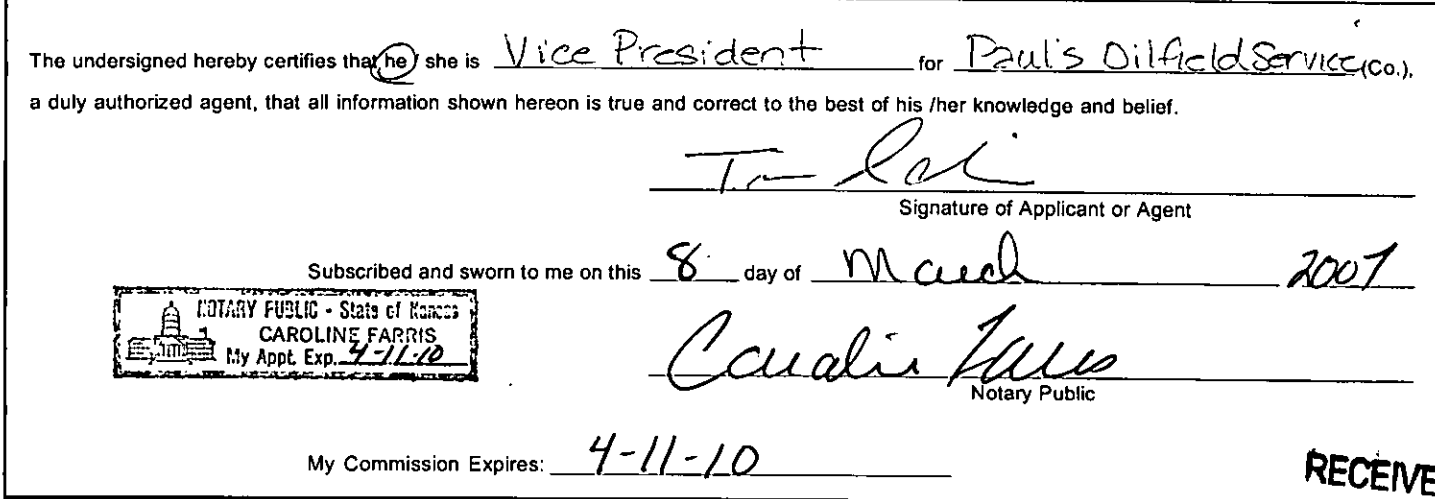 The undersigned hereby certifies that he / she is Vice President for Paul's Oilfield Service (Co.),
a duly authorized agent, that all information shown hereon is true and correct to the best of his /her knowledge and belief.
Signature of Applicant or Agent
Subscribed and sworn to me on this 8 day of March 2007
NOTARY PUBLIC - State of Kansas
CAROLINE FARRIS
My Appt. Exp. 4-11-10
Caroline Farris
Notary Public
My Commission Expires: 4-11-10
RECEIVE